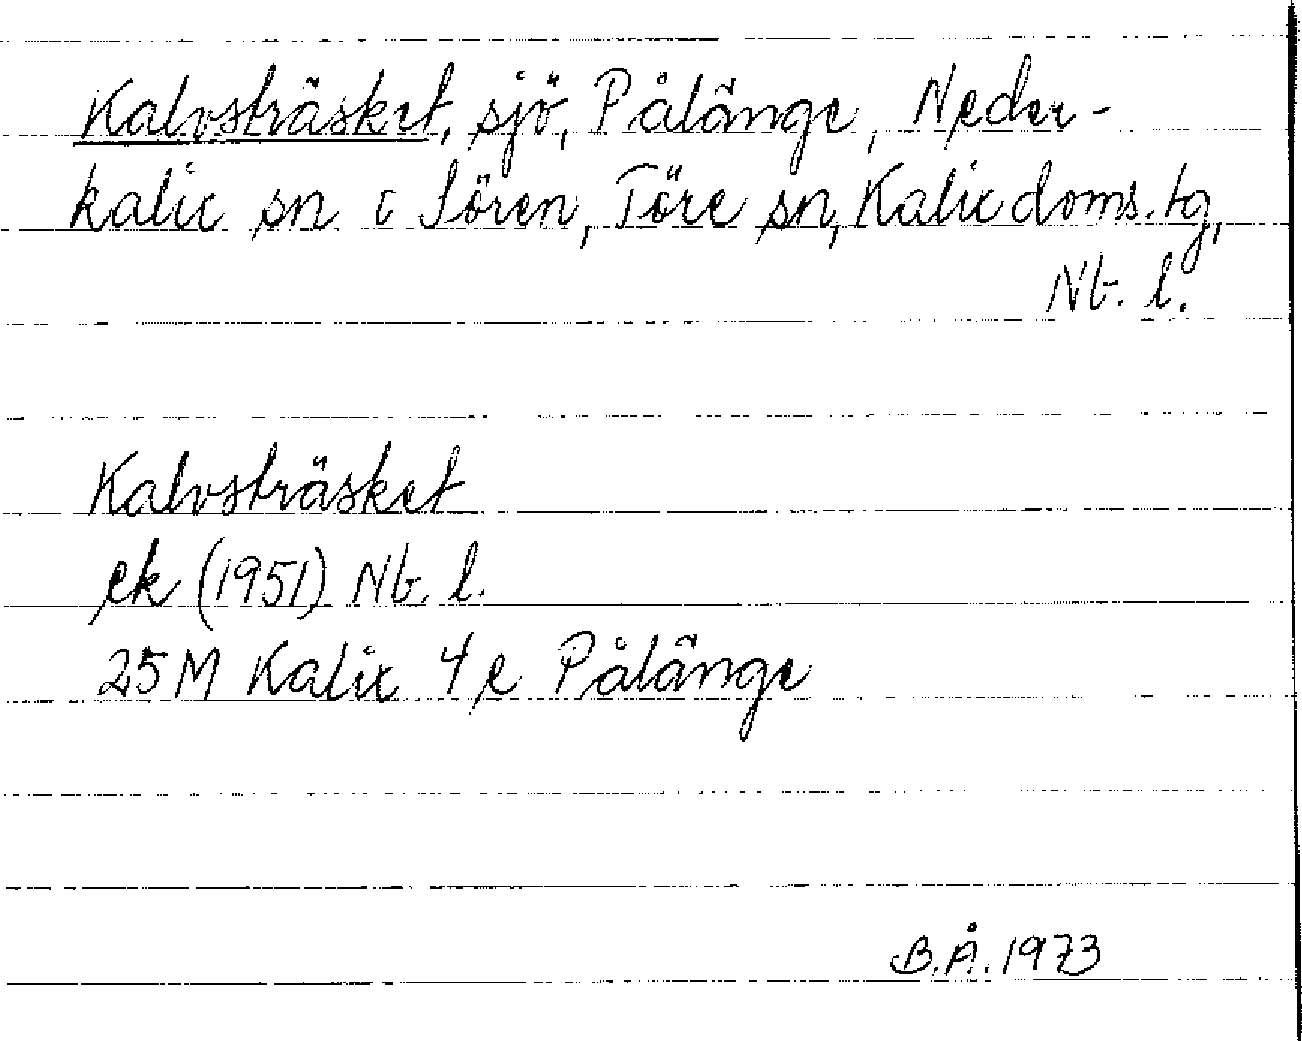 Kalvsträsket, sjö, Pålänge, Neder-
kalix sn i Sören, Töre sn, Kalix doms. tg,
Nb. l.
Kalvsträsket
ek (1951) Nb. l.
25M Kalix 4e Pålänge
B.Å. 1973